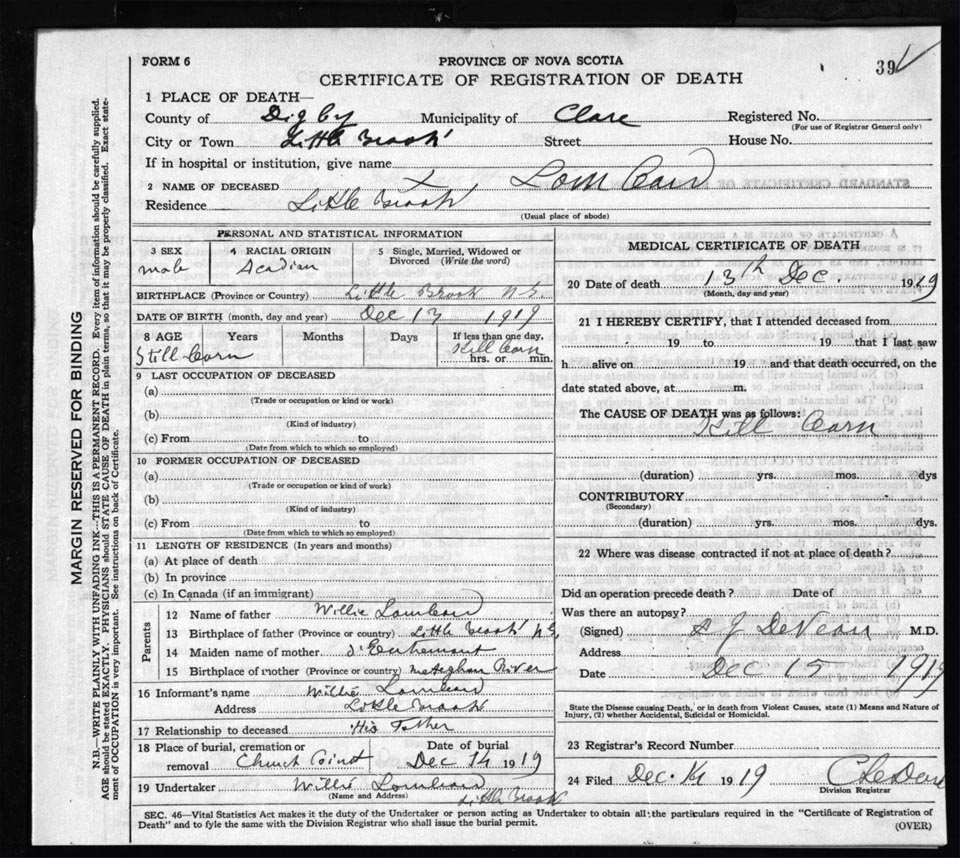 FORM 6
PROVINCE OF NOVA SCOTIA
39
CERTIFICATE OF REGISTRATION OF DEATH
MARGIN RESERVED FOR BINDING
N.B.—WRITE PLAINLY WITH UNFADING INK—THIS IS A PERMANENT RECORD. Every item of information should be carefully supplied.
AGE should be stated EXACTLY. PHYSICIANS should STATE CAUSE OF DEATH in plain terms, so that it may be properly classified. Exact state-
ment of OCCUPATION is very important. See instructions on back of Certificate.
1 PLACE OF DEATH—
County of Digby Municipality of Clare Registered No.
(For use of Registrar General only)
City or Town Little Brook Street House No.
If in hospital or institution, give name
2 NAME OF DECEASED X Lombard
Residence Little Brook
(Usual place of abode)
PERSONAL AND STATISTICAL INFORMATION
3 SEX 4 RACIAL ORIGIN 5 Single, Married, Widowed or
Divorced (Write the word)
male Acadian
BIRTHPLACE (Province or Country) Little Brook N.S.
DATE OF BIRTH (month, day and year) Dec 13 1919
8 AGE Years Months Days If less than one day,
Still born Still born
hrs. or min.
9 LAST OCCUPATION OF DECEASED
(a)
(Trade or occupation or kind or work)
(b)
(Kind of industry)
(c) From to
(Date from which to which so employed)
10 FORMER OCCUPATION OF DECEASED
(a)
(Trade or occupation or kind of work)
(b)
(Kind of industry)
(c) From to
(Date from which to which so employed)
11 LENGTH OF RESIDENCE (In years and months)
(a) At place of death
(b) In province
(c) In Canada (if an immigrant)
Parents
12 Name of father Willie Lombard
13 Birthplace of father (Province or country) Little Brook N.S.
14 Maiden name of mother d'Entremont
15 Birthplace of mother (Province or country) Meteghan River
16 Informant's name Willie Lombard
Address Little Brook
17 Relationship to deceased His Father
18 Place of burial, cremation or Date of burial
removal Church Point Dec 14 1919
19 Undertaker Willie Lombard
(Name and Address) Little Brook
MEDICAL CERTIFICATE OF DEATH
20 Date of death 13th Dec. 1919
(Month, day and year)
21 I HEREBY CERTIFY, that I attended deceased from
19 to 19 that I last saw
h alive on 19 and that death occurred, on the
date stated above, at m.
The CAUSE OF DEATH was as follows:
Still born
(duration) yrs. mos. dys
CONTRIBUTORY
(Secondary)
(duration) yrs. mos. dys.
22 Where was disease contracted if not at place of death?
Did an operation precede death? Date of
Was there an autopsy?
(Signed) DeVeau M.D.
Address
Date Dec 15 1919
State the Disease causing Death, or in death from Violent Causes, state (1) Means and Nature of
Injury, (2) whether Accidental, Suicidal or Homicidal.
23 Registrar's Record Number
24 Filed Dec. 14 1919
Division Registrar
SEC. 46—Vital Statistics Act makes it the duty of the Undertaker or person acting as Undertaker to obtain all the particulars required in the "Certificate of Registration of
Death" and to fyle the same with the Division Registrar who shall issue the burial permit.
(OVER)